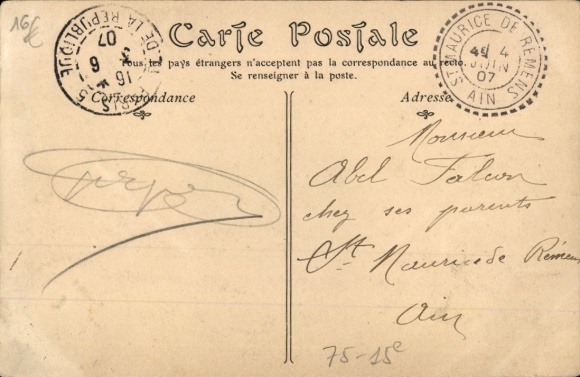 16€
Carte Postale
Tous les pays étrangers n'acceptent pas la correspondance au recto.
Se renseigner à la poste.
Correspondance
Adresse
PARIS
DE LA RÉPUBLIQUE
16
6
07
ST MAURICE DE REMENS
4
JUIN
07
AIN
Monsieur
Abel Falcon
chez ses parents
St Maurice de Rémens
Ain
75-15e